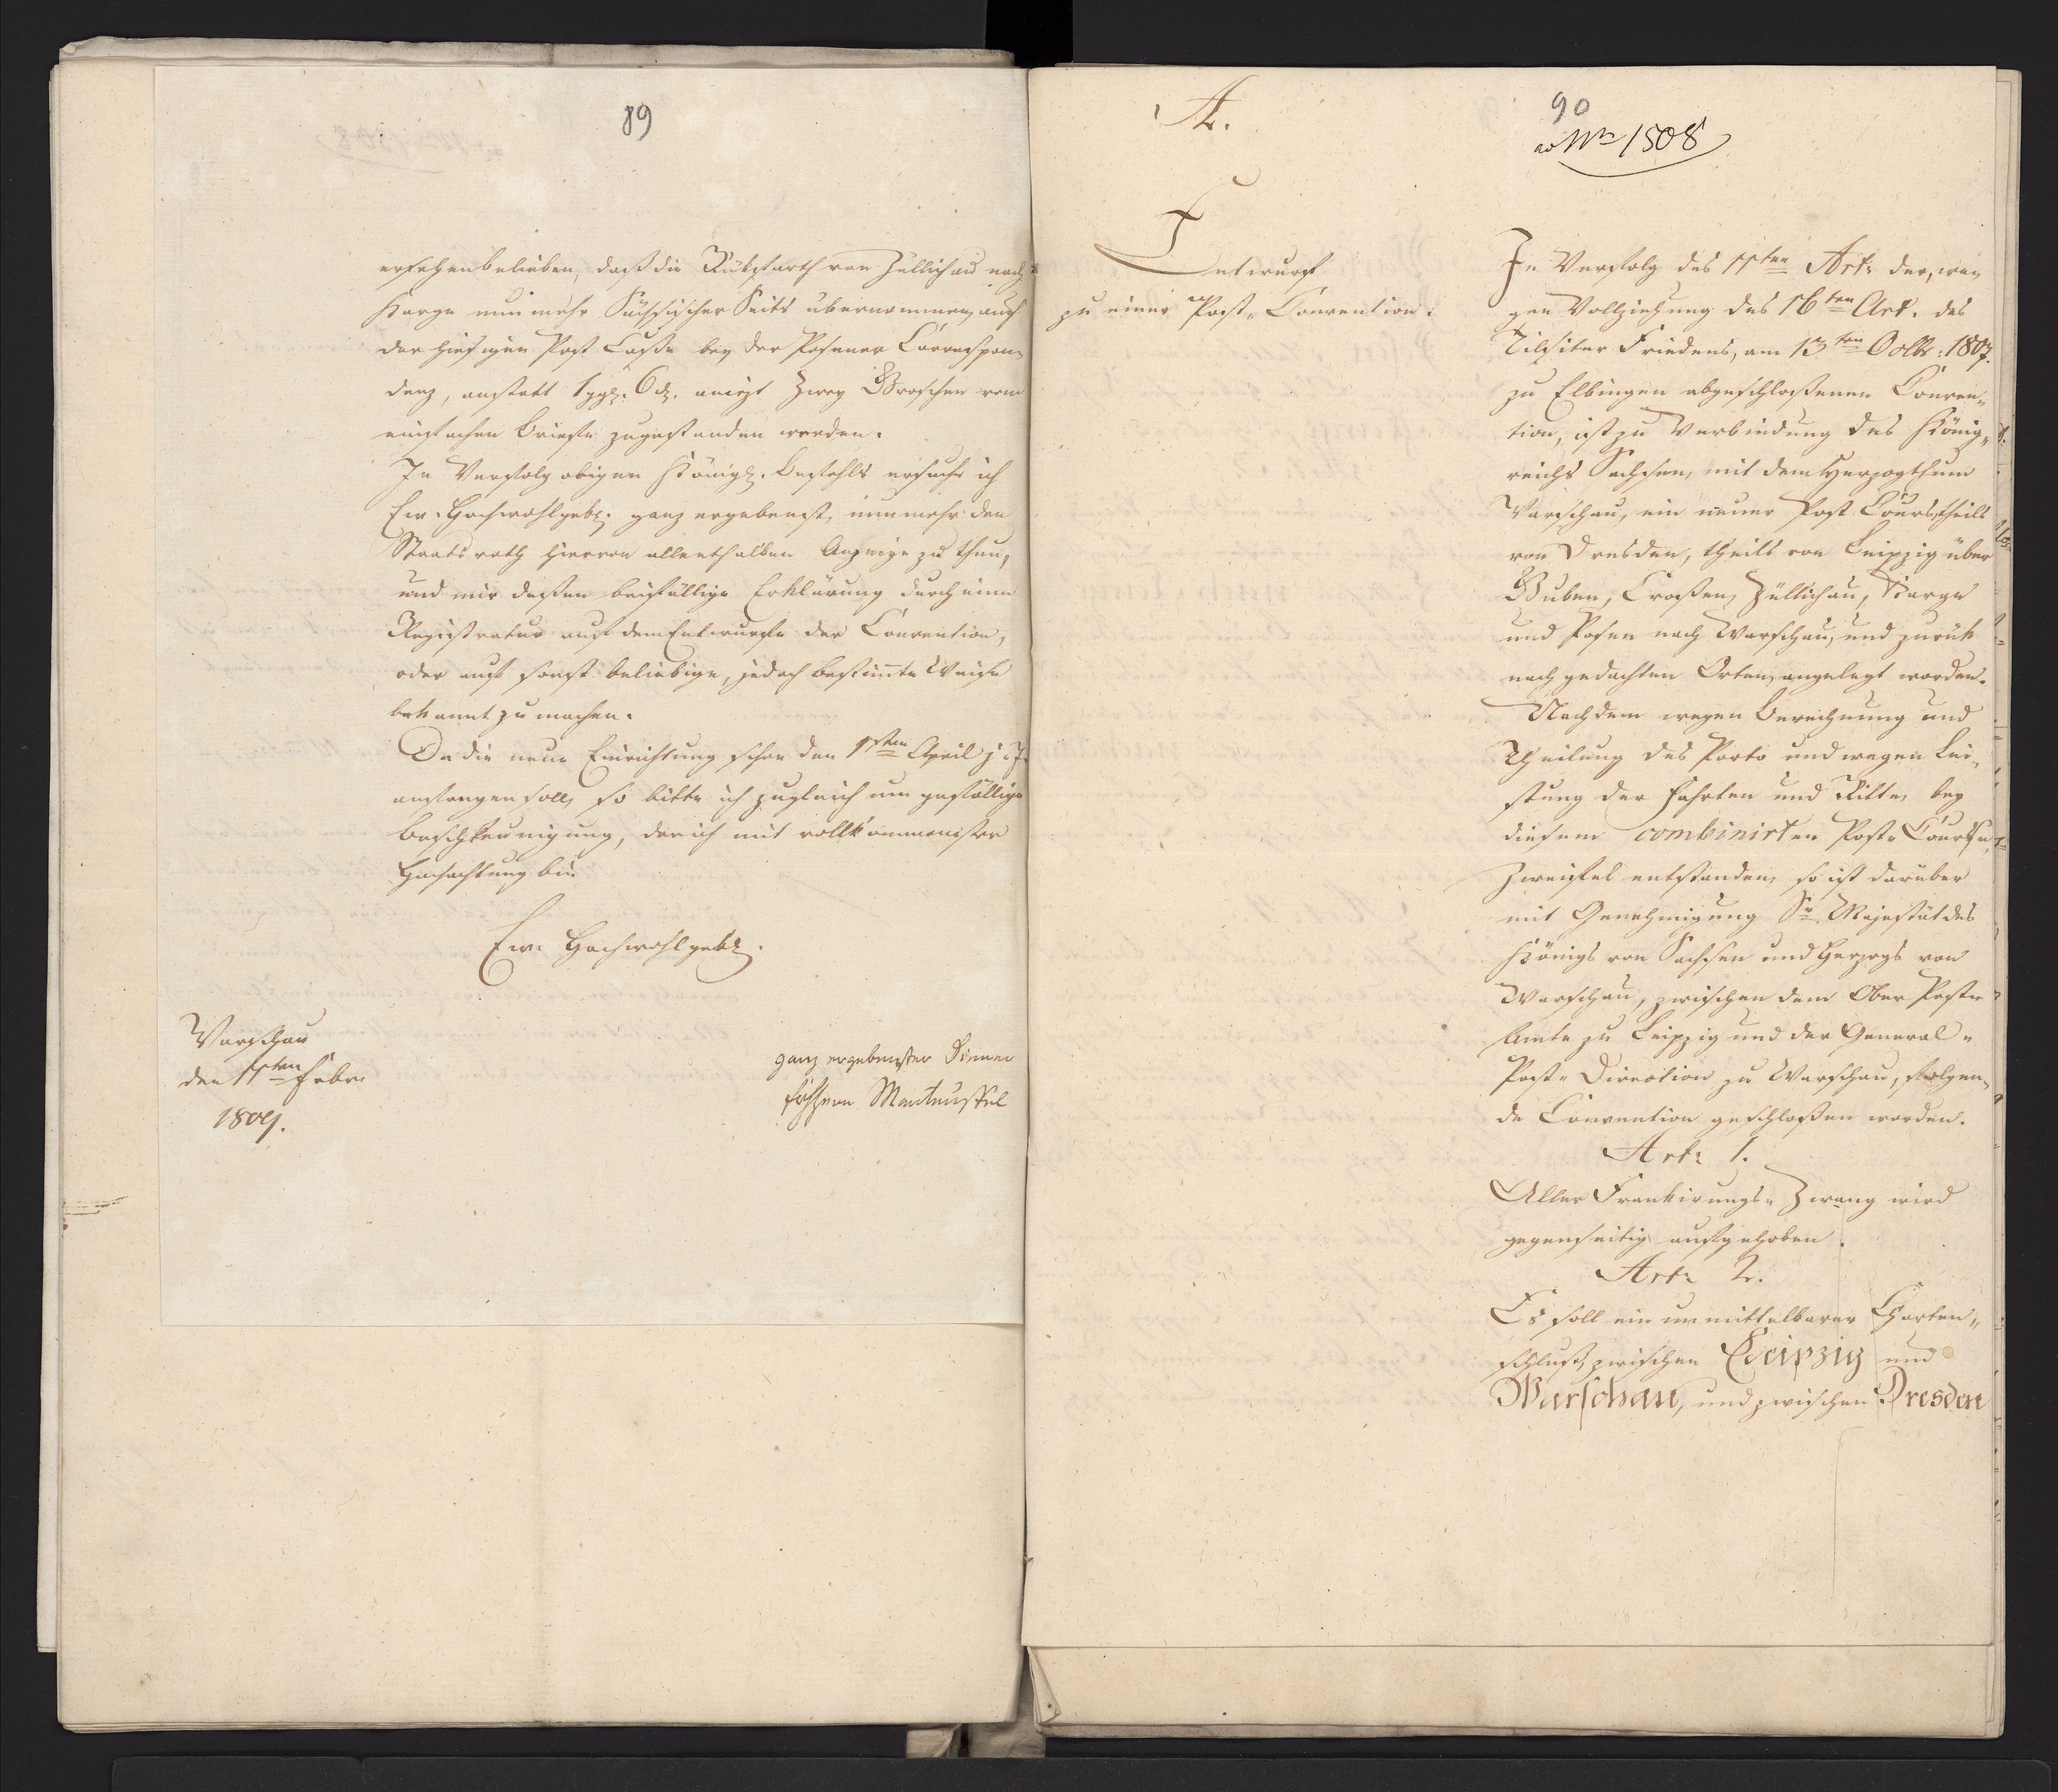 89
ersehen belieben, daß die Rükfarth von Züllichau nach
Karge nunmehr Sächsischer Seits übernommen, auch
der hiesigen Post Casse bey der Posener Correspon-
denz, anstatt 1 ggl. 6 d. anietzt Zwey Groschen vom
einfachen Briefe zugestanden worden.
In Verfolg obigen Königl. Befehls ersuche ich
Ew. Hochwohlgebl. ganz ergebenst, nunmehr den
Staatsrath hiervon allenthalben Anzeige zu thun,
und mir deßen beifällige Erklärung durch eine
Registratur auf dem Entwurfe der Convention,
oder auf sonst beliebige, jedoch bestimte Weise
bekannt zu machen.
Da die neue Einrichtung schon den 1sten April j. J.
anfangen soll, so bitte ich zugleich um gefällige
Beschleunigung, der ich mit vollkommenster
Hochachtung bin
Ew. Hochwohlgebl.
Warschau
den 11ten Febr.
1809.
ganz ergebenster Diener
Manteuffel
A.
90
ad Nr 1508
Entwurf
zu einer Post-Convention.
In Verfolg des 11ten Art. der, we-
gen Vollziehung des 16ten Art. des
Tilsiter Friedens, am 13ten Octbr. 1807.
zu Elbingen abgeschloßenen Conven-
tion, ist zu Verbindung des König-
reichs Sachsen, mit dem Herzogthum
Warschau, ein neuer Post Cours, theils
von Dresden, theils von Leipzig über
Guben, Croßen, Züllichau, Karge
und Posen nach Warschau, und zurük
nach gedachten Orten, angelegt worden.
Nachdem wegen Berechnung und
Theilung des Porto und wegen Lei-
stung der Fahrten und Ritte, bey
diesem combinirten Post-Course,
Zweifel entstanden, so ist darüber
mit Genehmigung Sr. Majestät des
Königs von Sachsen und Herzogs von
Warschau, zwischen dem Ober Post-
Amte zu Leipzig und der General-
Post-Direction zu Warschau, folgen-
de Convention geschloßen worden.
Art. 1.
Aller Frankirungs-Zwang wird
gegenseitig aufgehoben.
Art. 2.
Es soll ein unmittelbarer Charten-
schluß, zwischen Leipzig und
Warschau, und zwischen Dresden